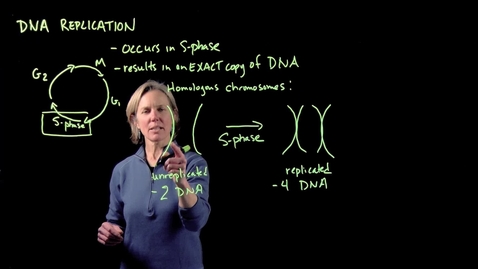 DNA REPLICATION
- OCCURS IN S-phase
- results in an EXACT copy of DNA
Homologous chromosomes:
M
G2
G1
S-phase
S-phase
unreplicated
- 2 DNA
replicated
- 4 DNA